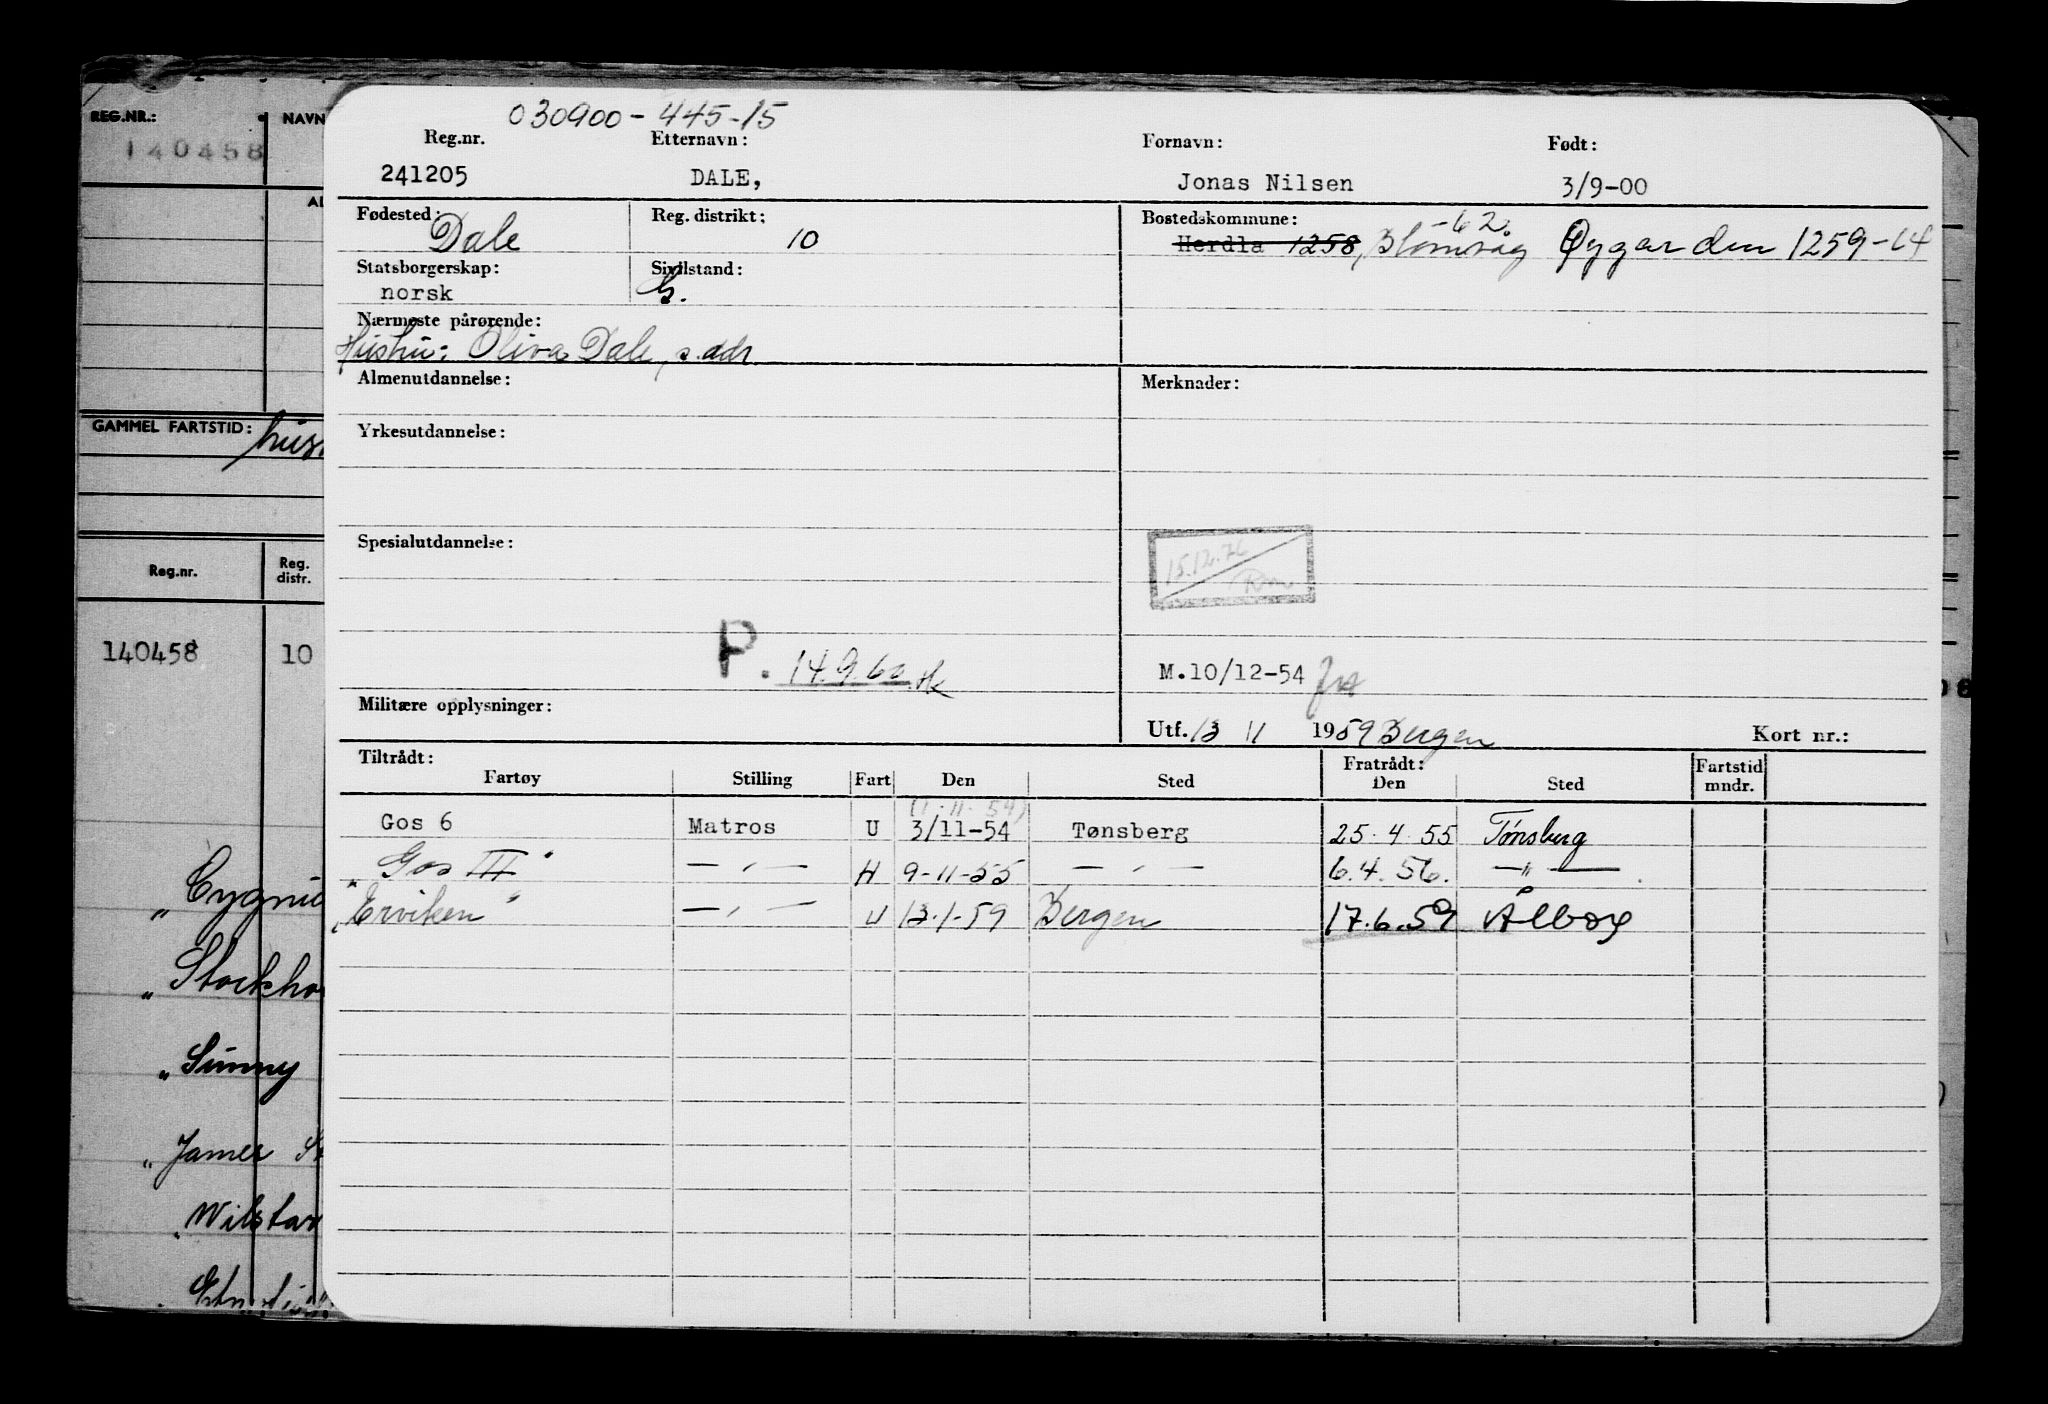 REG.NR.:
NAVN
140458
GAMMEL FARTSTID:
Reg.nr.
Reg. distr.
140458 10
"Cygnu
"Stockho
"Sunny
"James
"Wilstar
030900-445-15
Reg.nr. Etternavn: Fornavn: Født:
241205 DALE, Jonas Nilsen 3/9-00
Fødested: Reg. distrikt: Bostedskommune:
-62
Dale 10 Herdla 1258, Blomvåg Øygarden 1259-64
Statsborgerskap: Sivilstand:
norsk G.
Nærmeste pårørende:
Hustru: Oliva Dale, s. adr.
Almenutdannelse: Merknader:
Yrkesutdannelse:
Spesialutdannelse:
15.12.76
P. 14.9.60
M.10/12-54
Militære opplysninger:
Utf. 13 11 1959 Bergen Kort nr.:
Tiltrådt: Fratrådt: Fartstid
Fartøy Stilling Fart Den Sted Den Sted mndr.
(1-11-54)
Gos 6 Matros U 3/11-54 Tønsberg 25.4.55 Tønsberg
"Gos III" —"— H 9-11-55 —"— 6.4.56. —"—
"Erviken" —"— U 13-1-59 Bergen 17.6.59 Ålborg